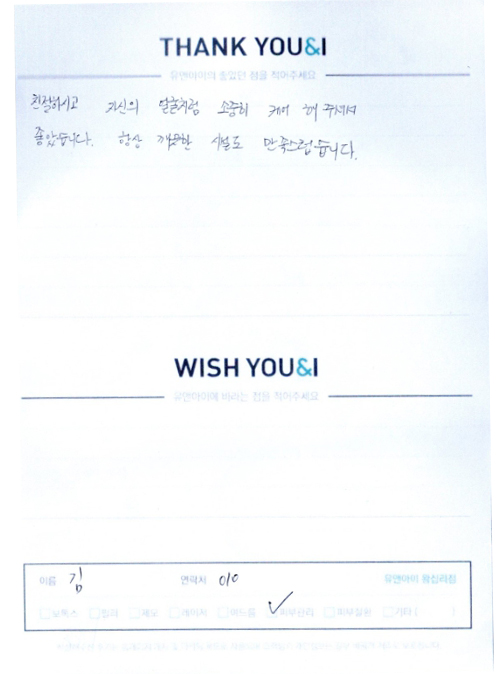 THANK YOU&I
유앤아이의 좋았던 점을 적어주세요
친절하시고 자신의 얼굴처럼 소중히 케어 해 주셔서
좋았습니다. 항상 깨끗한 시설도 만족스럽습니다.
WISH YOU&I
유앤아이에 바라는 점을 적어주세요
이름 김 연락처 010 유앤아이 왕십리점
보톡스 필러 제모 레이저 여드름 피부관리 피부질환 기타 ( )